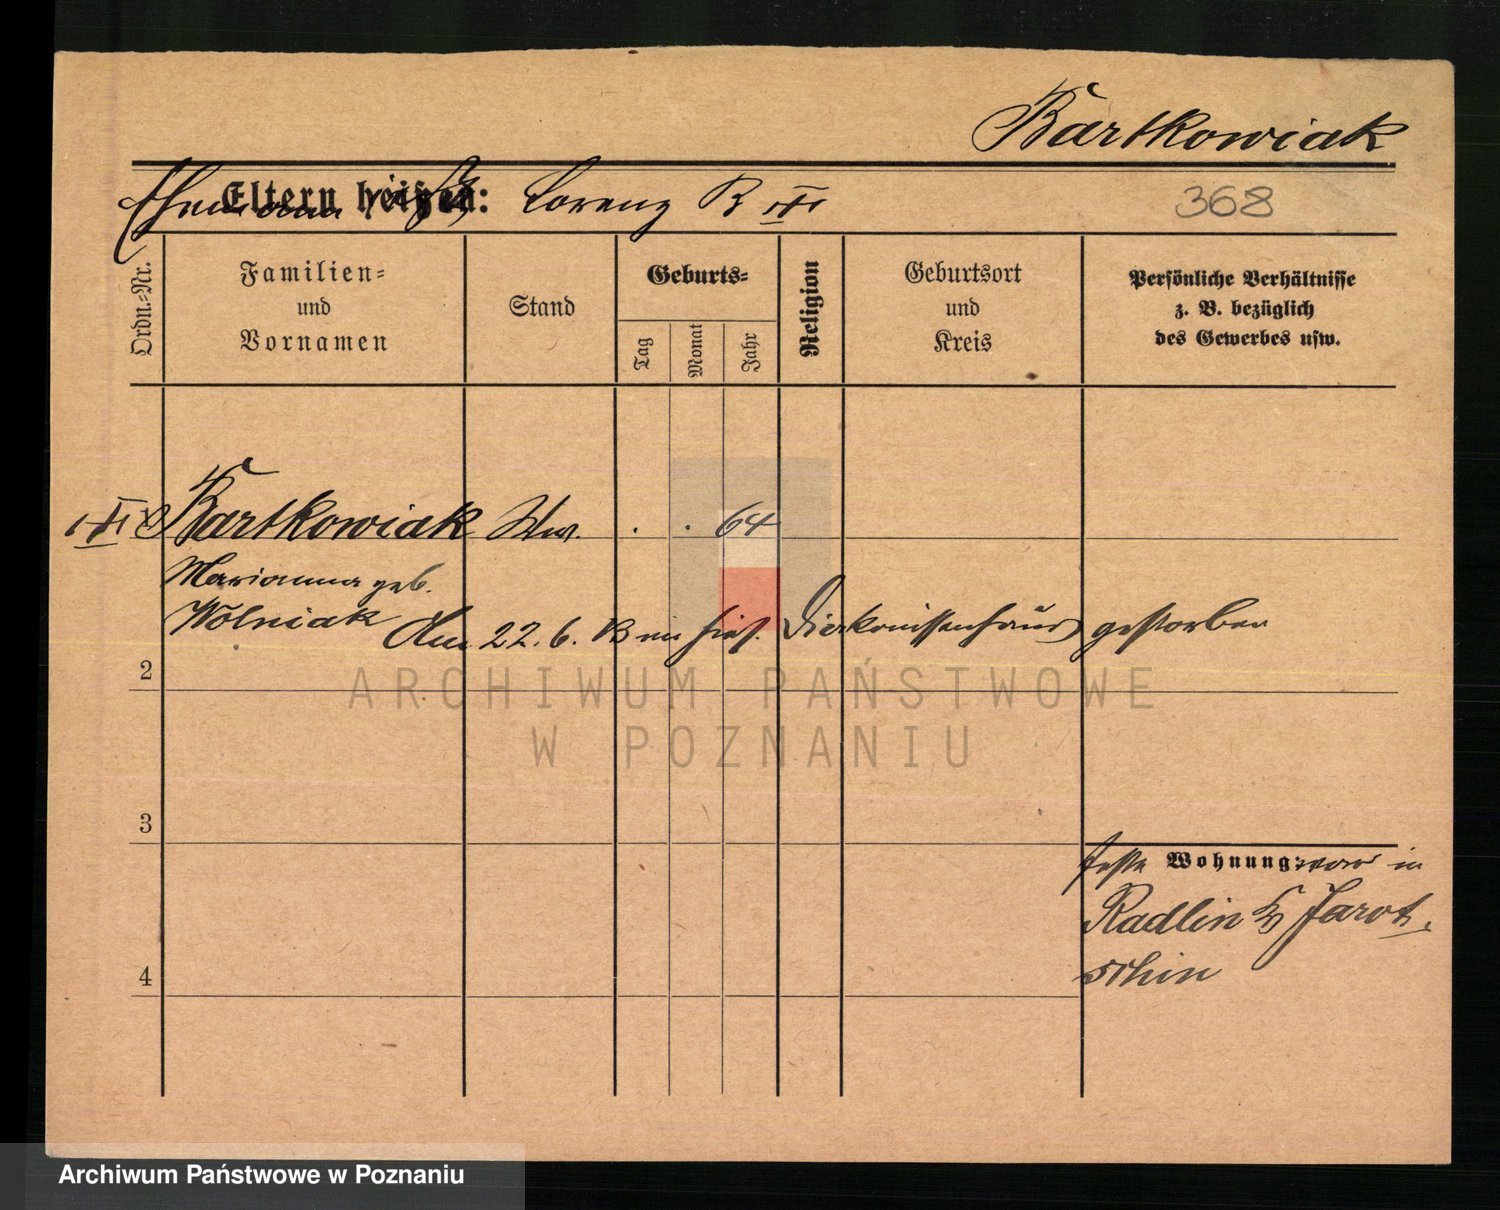 Bartkowiak
Eltern heißen: Lorenz B
368
Ordn.=Nr.
Familien=
und
Vornamen
Stand
Geburts=
Tag
Monat
Jahr
Religion
Geburtsort
und
Kreis
Persönliche Verhältnisse
z. B. bezüglich
des Gewerbes usw.
Bartkowiak Ww. . . 64
Marianna geb.
Wolniak Am 22. 6. 13 im hies. Diakonissenhaus gestorben
2
ARCHIWUM PAŃSTWOWE
W POZNANIU
3
feste Wohnung: war in
Radlin Jarot
schin
4
Archiwum Państwowe w Poznaniu